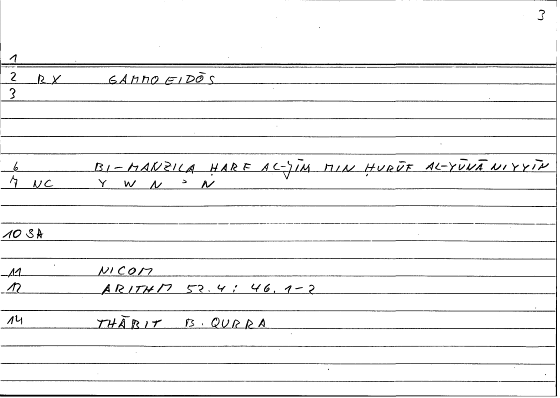 3
1
2 RX GAMMOEIDŌS
3
6 BI-MANZILA ḤARF AL-ǦĪM MIN ḤURŪF AL-YŪNĀNIYYĪN
7 NC Y W N = N
10 SA
11 NICOM
12 ARITHM 52.4 : 46.1-2
14 THĀBIT B. QURRA